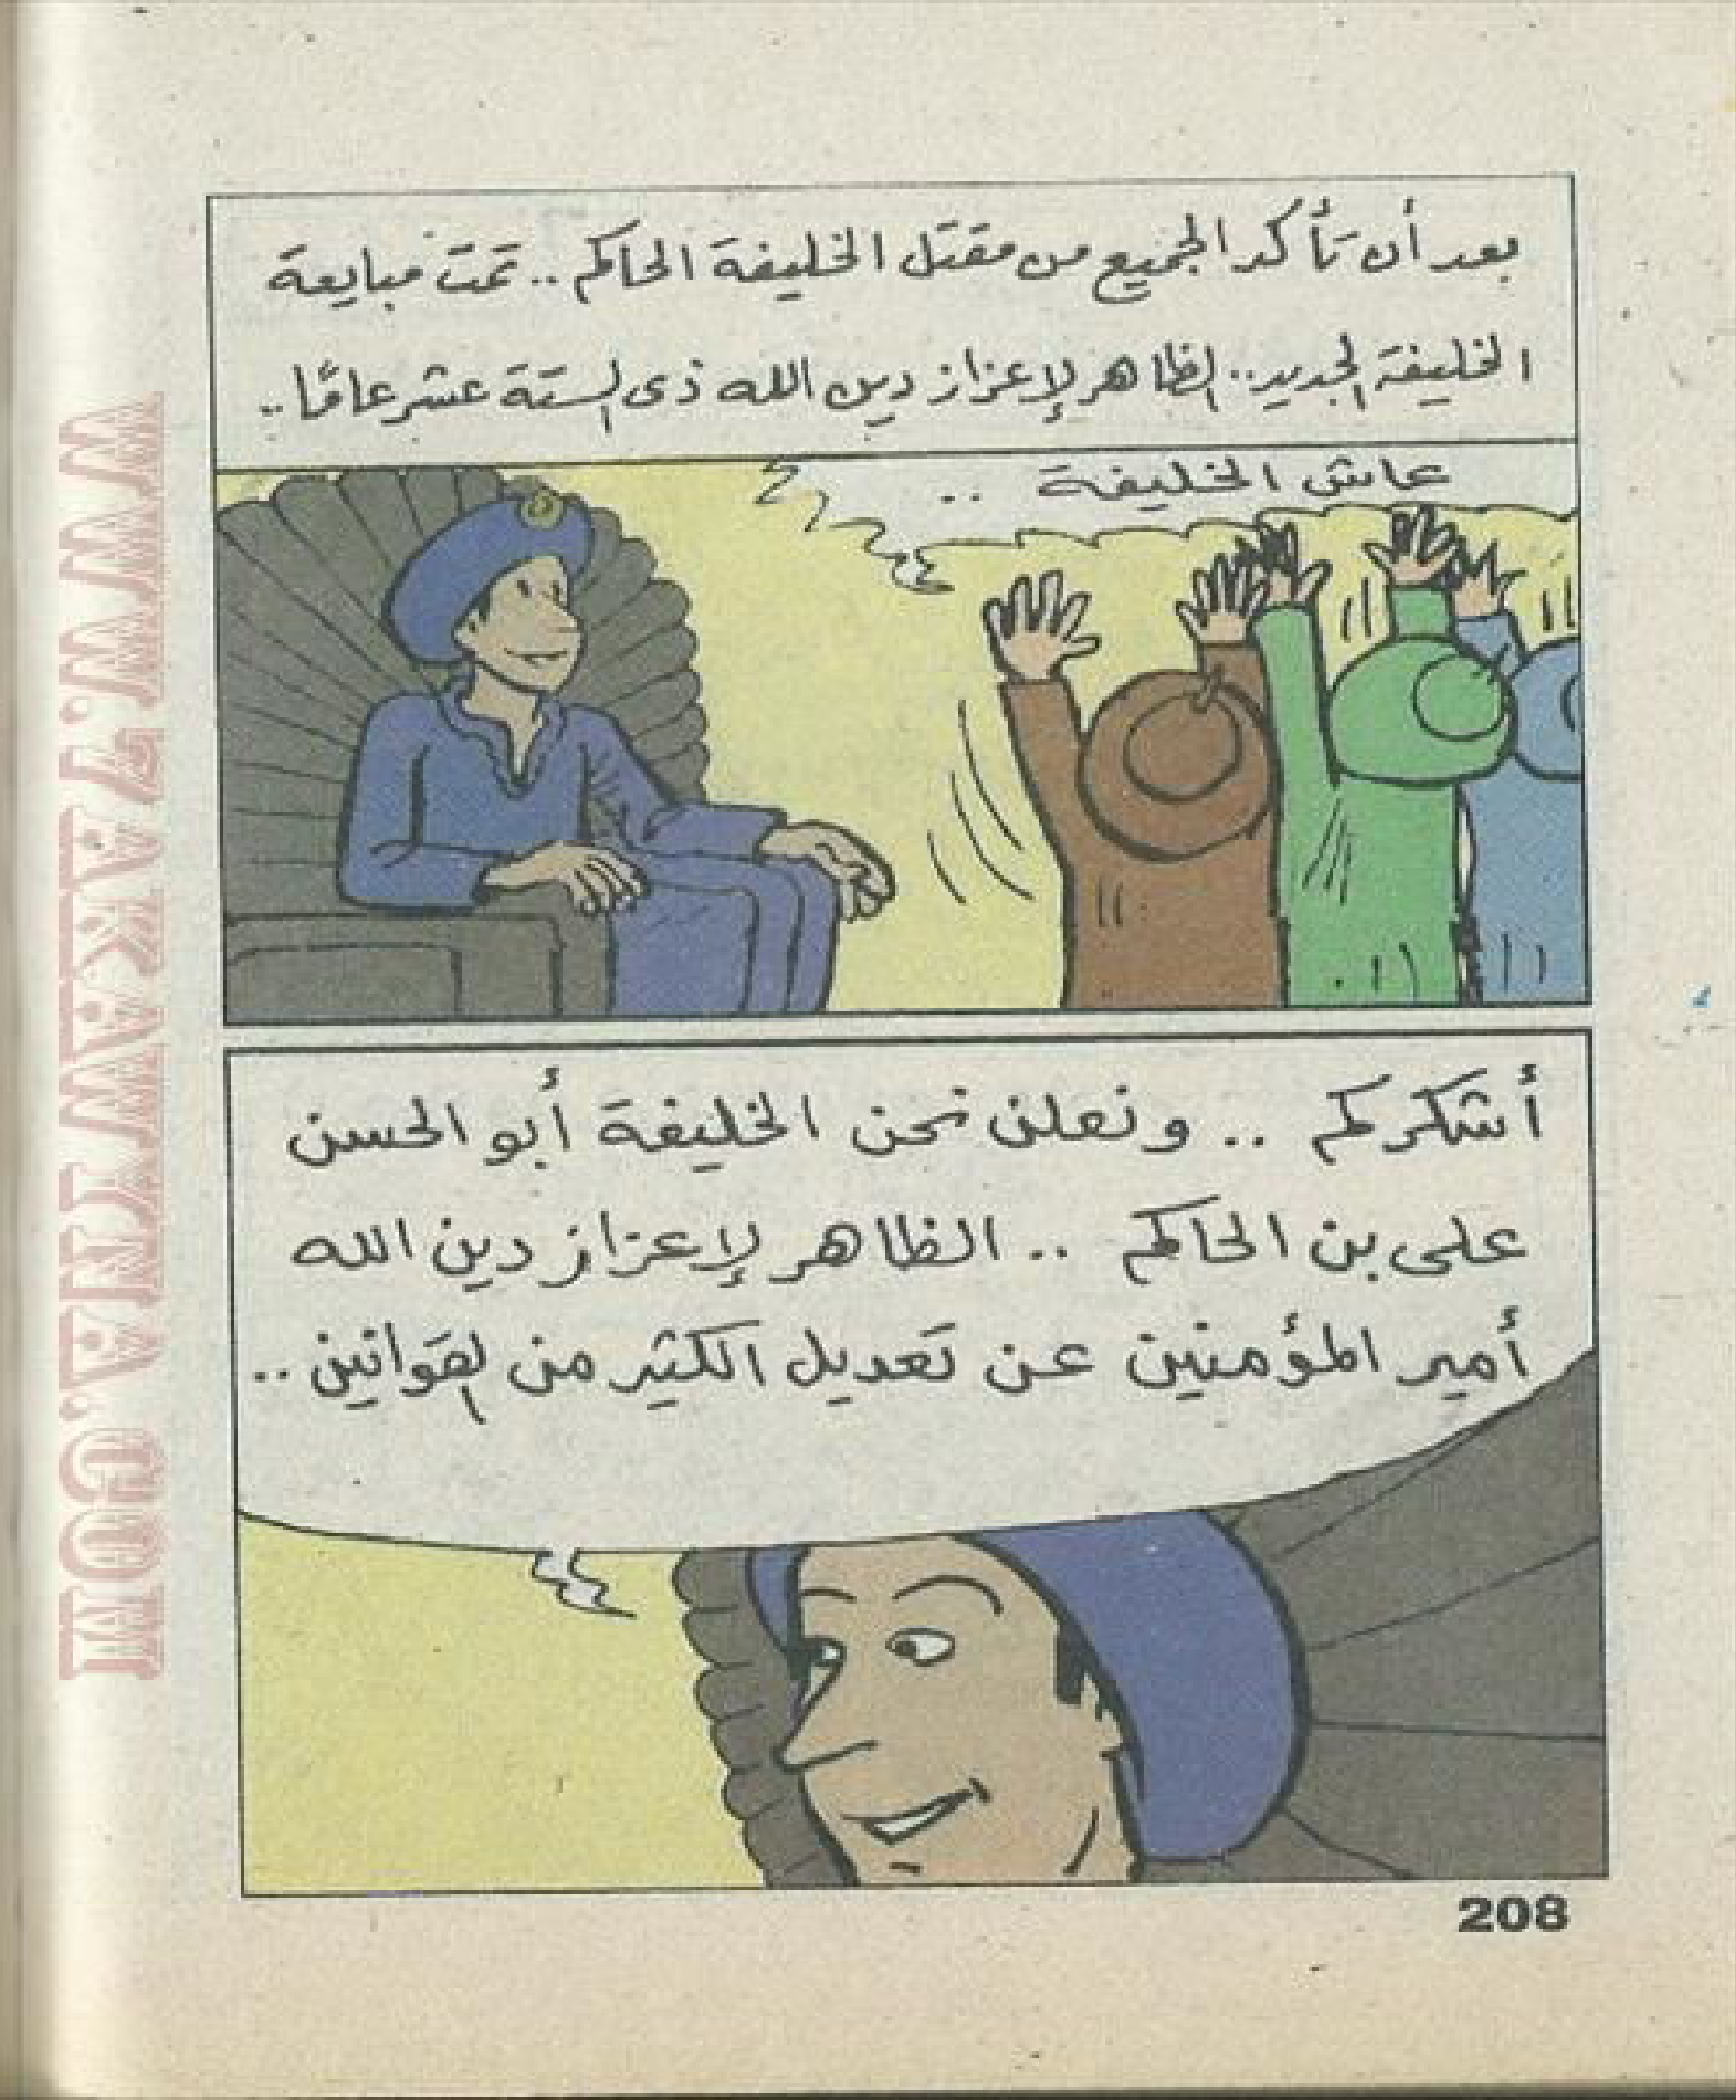 بعد أن تأكد الجميع من مقتل الخليفة الحاكم .. تمت مبايعة
الخليفة الجديد .. الظاهر لإعزاز دين الله ذى الستة عشر عامًا ..
عاش الخليفة ..
أشكركم .. ونعلن نحن الخليفة أبو الحسن
على بن الحاكم .. الظاهر لإعزاز دين الله
أمير المؤمنين عن تعديل الكثير من القوانين ..
208
WWW.7AKAWITNA.COM